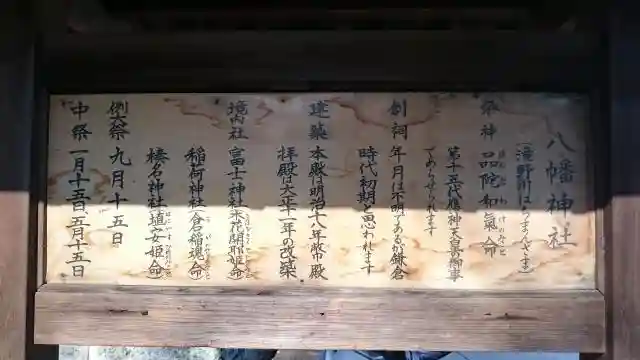 八幡神社
(滝野川はちまんさま)
祭神 品陀和氣命
ほんだわけのみこと
第十五代應神天皇の御事
であらせられます
創祠 年月は不明であるが鎌倉
時代初期と思われます
建築 本殿は明治十八年 幣殿
拝殿は大正十一年の改築
境内社 富士神社(木花開耶姫命)
稲荷神社(倉稲魂命)
榛名神社(埴安姫命)
例祭 九月十五日
中祭 一月十五日、五月十五日